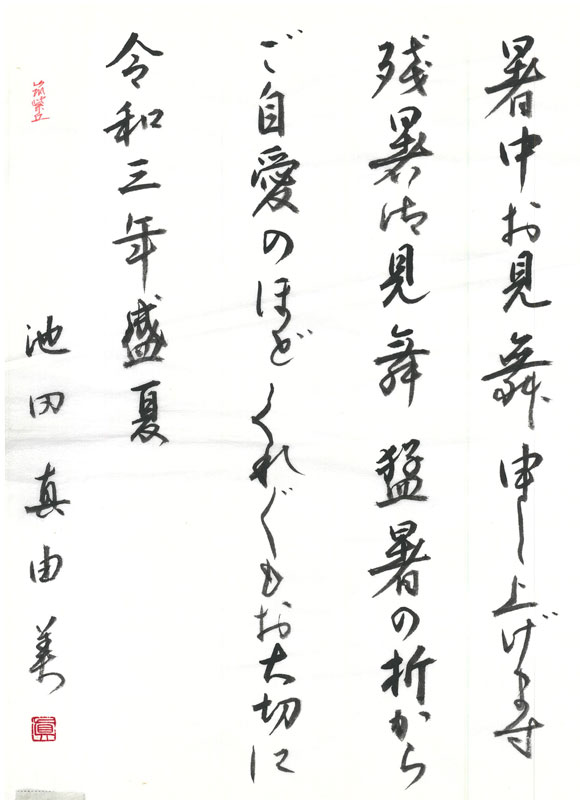 暑中お見舞申し上げます
残暑御見舞 猛暑の折から
ご自愛のほどくれ〴〵もお大切に
令和三年盛夏
池田真由美